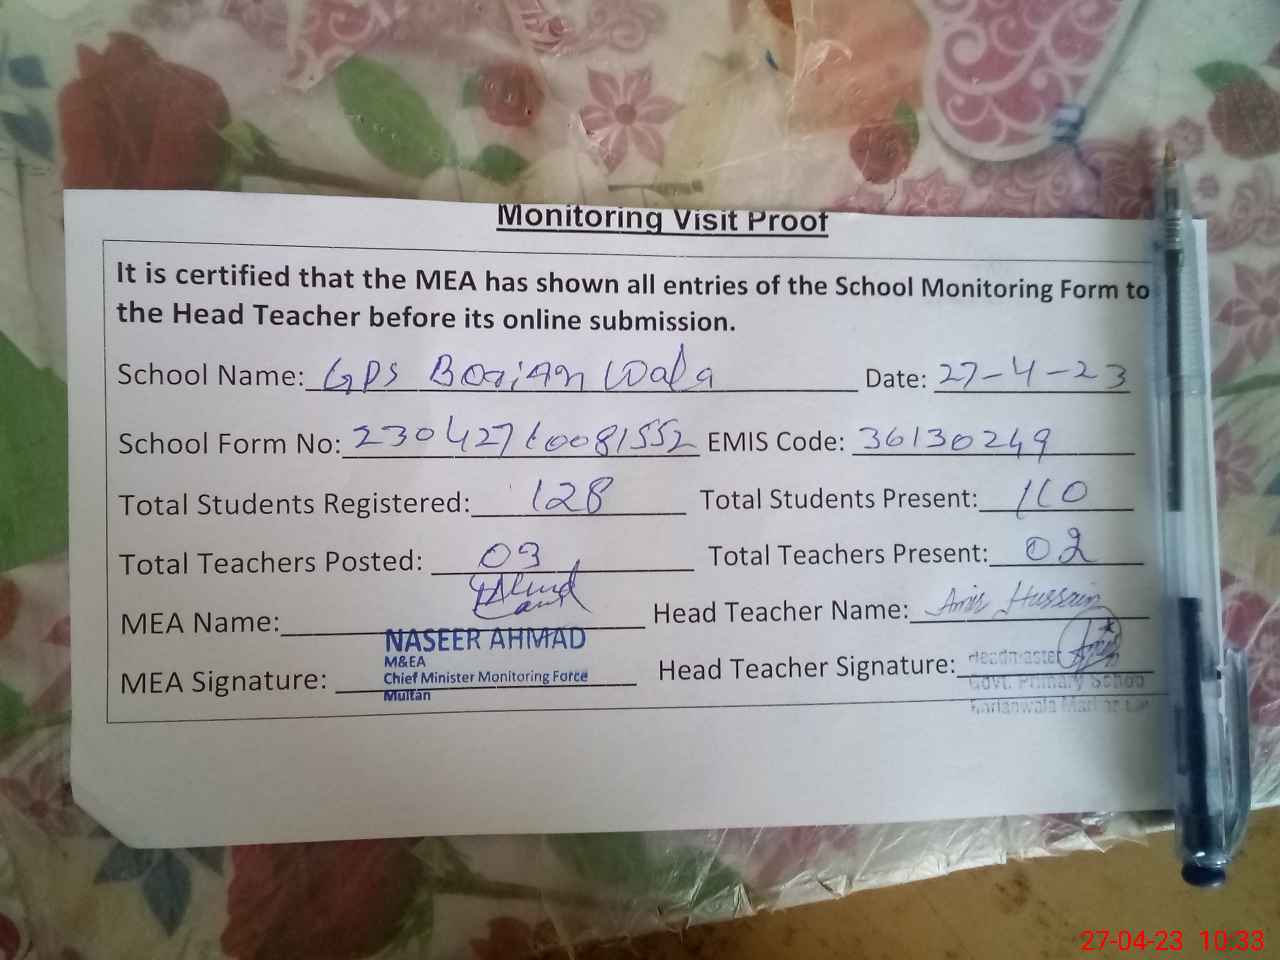 Monitoring Visit Proof
It is certified that the MEA has shown all entries of the School Monitoring Form to
the Head Teacher before its online submission.
School Name: GPS Borian Wala Date: 27-4-23
School Form No: 230427100081552 EMIS Code: 36130249
Total Students Registered: 128 Total Students Present: 110
Total Teachers Posted: 03 Total Teachers Present: 02
MEA Name: Head Teacher Name: Amir Hussain
NASEER AHMAD
M&EA
Chief Minister Monitoring Force
Multan
MEA Signature: Head Teacher Signature:
Headmaster
Govt. Primary School
27-04-23 10:33